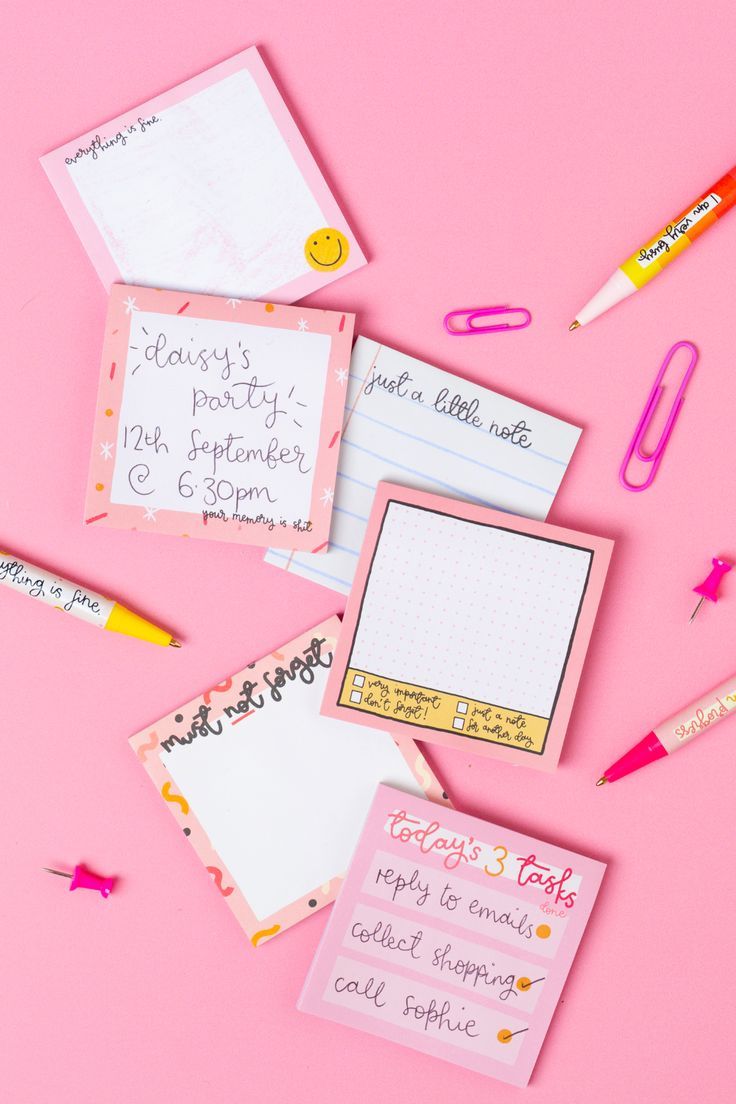 everything is fine.
I am very busy
daisy's
party
12th September
@ 6.30pm
your memory is shit
just a little note
ything is fine.
very important
don't forget!
just a note
for another day
must not forget
progress
today's 3 tasks
done
reply to emails
collect shopping
call Sophie